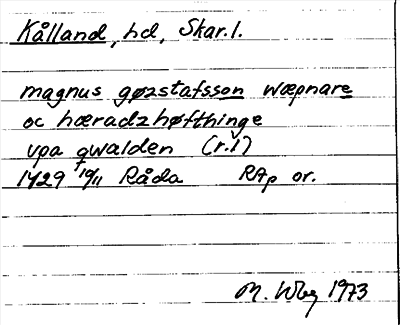 Kålland, hd, Skar. l.
magnus gøzstafsson wæpnare
oc hæradzhøfthinge
vpa qwalden (r. 1)
1429 19/11 Råda RAp or.
M. Wbg 1973